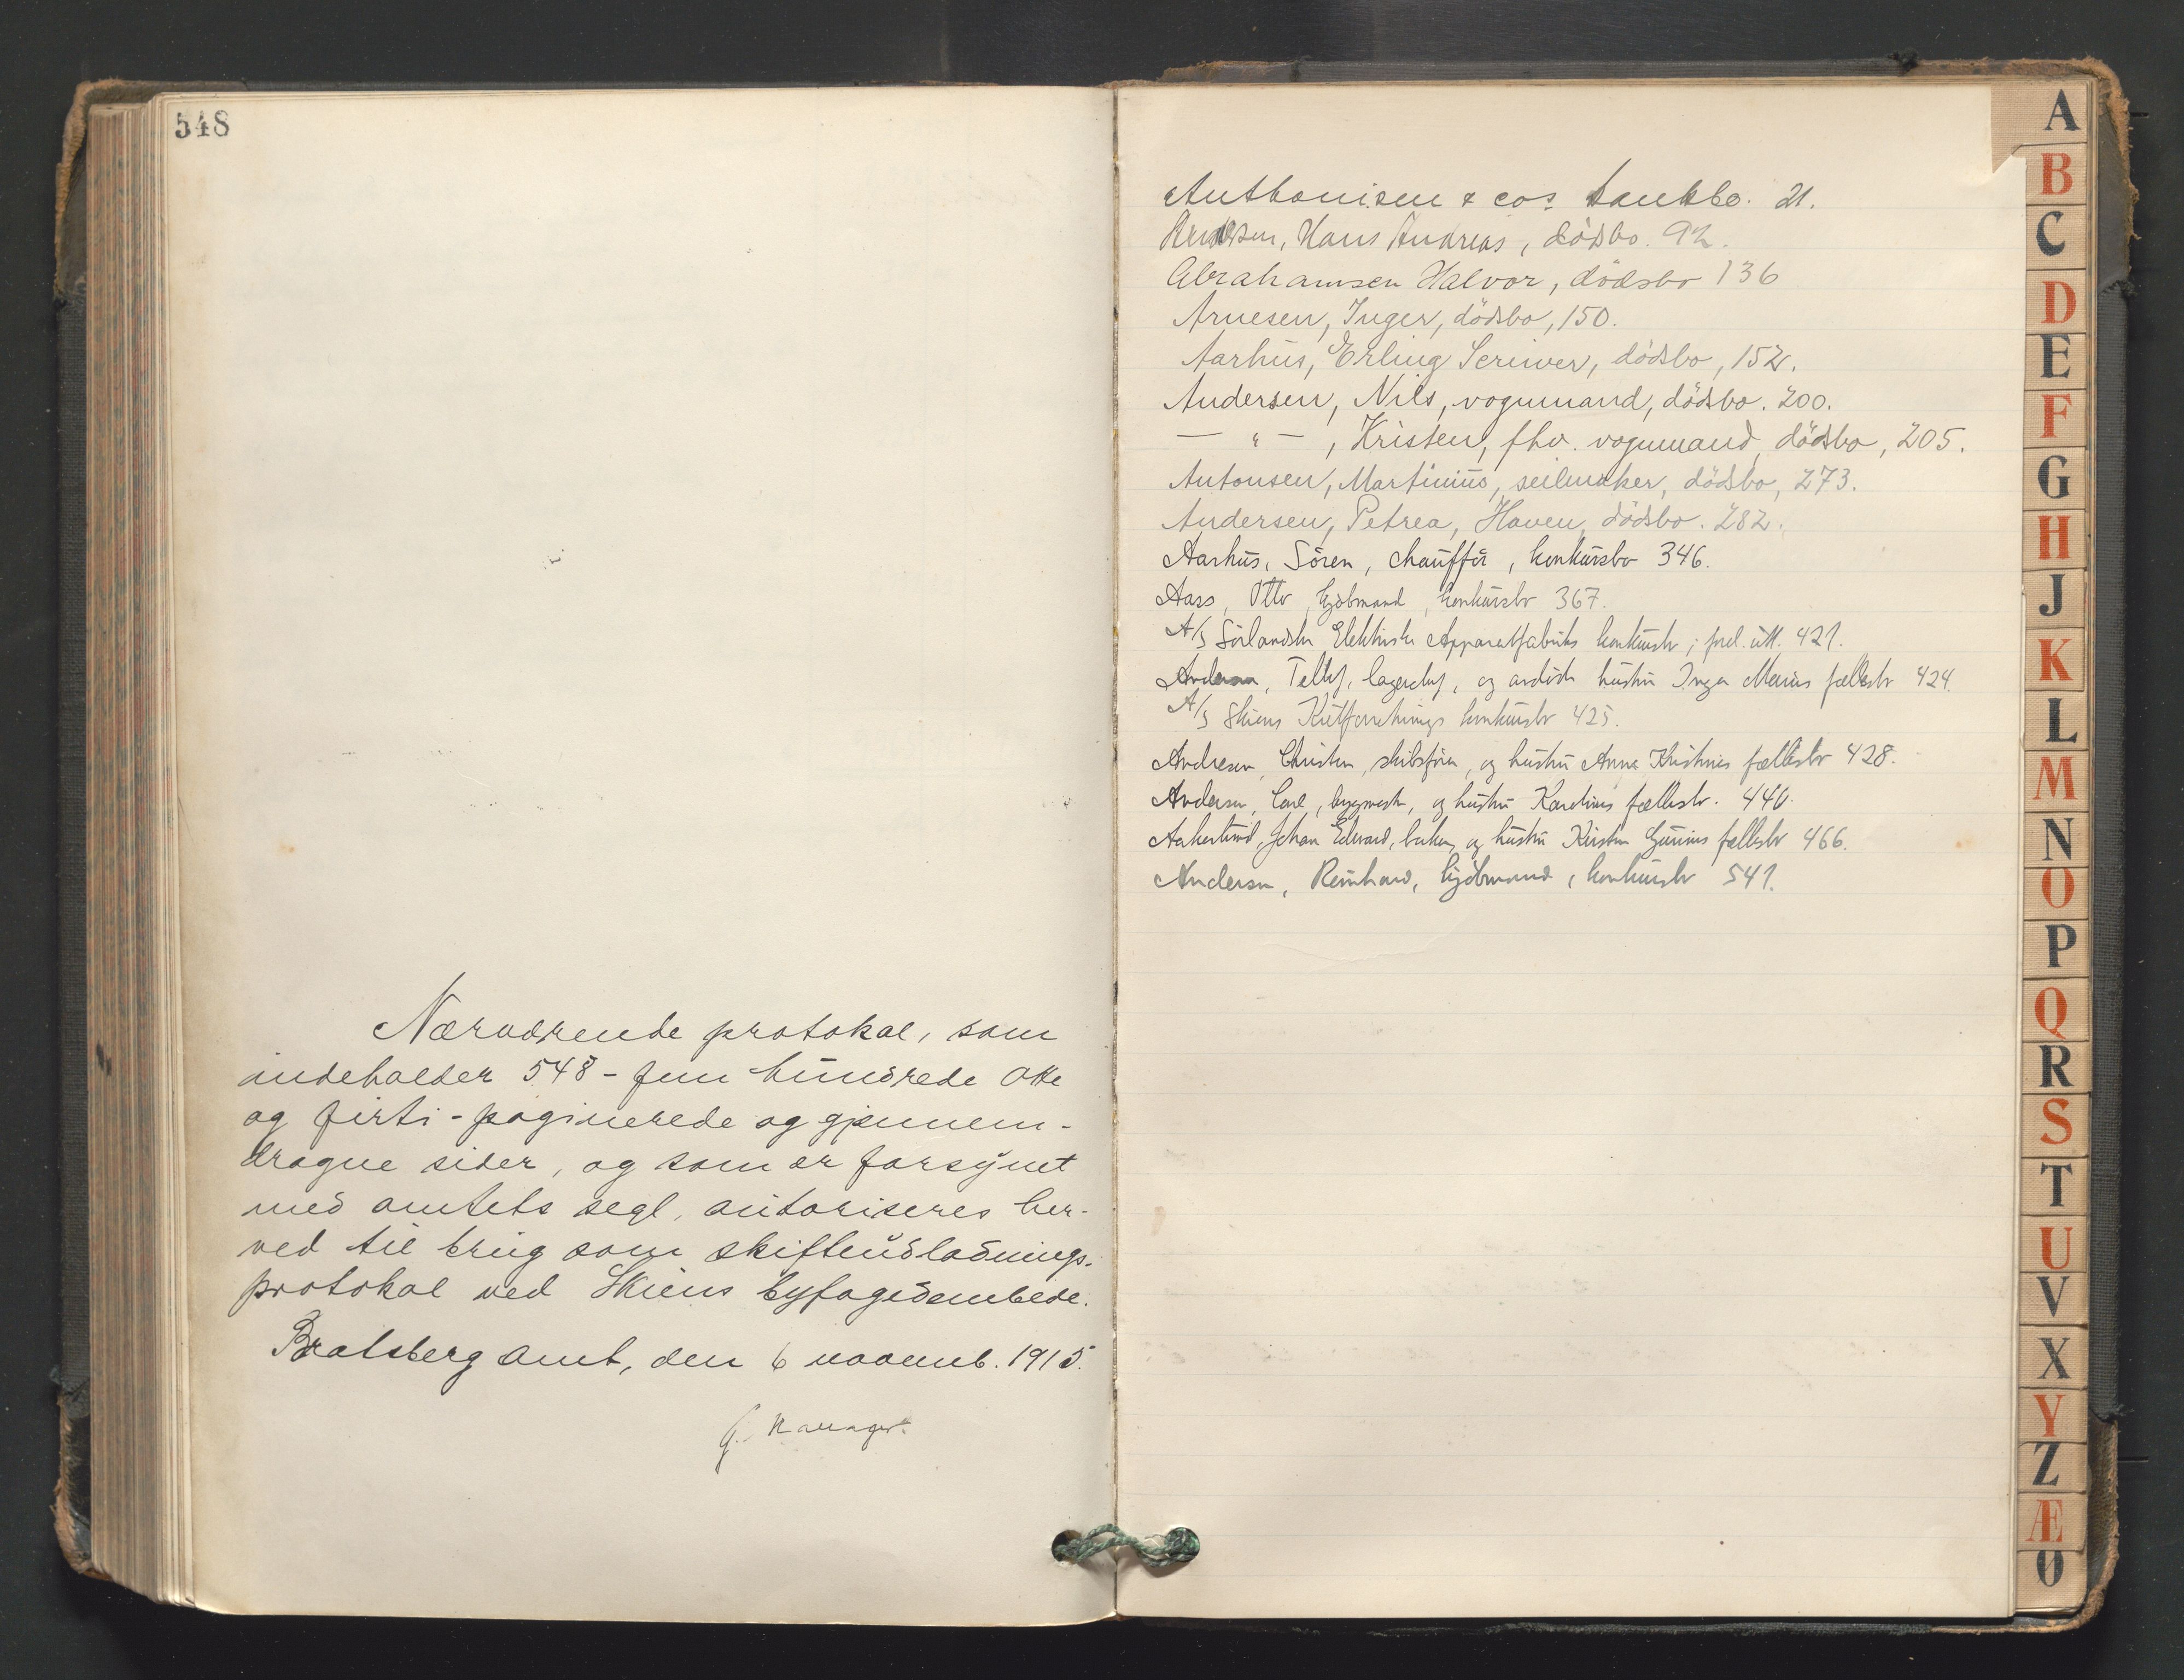 548
Nærværende protokol, som
indeholder 548 - fem hundrede otte
og firti - paginerede og gjennem-
dragne sider, og som er forsynet
med amtets segl, autoriseres her-
ved til brug som skifteudlodnings-
protokol ved Skiens byfogedembede.
Bratsberg amt, den 6 novemb. 1915.
Anthonisen & cos tankbo. 21.
Andersen, Hans Andreas, dödsbo. 92.
Abrahamsen Halvor, dödsbo 136
Arnesen, Inger, dödsbo, 150.
Aarhus, Erling Scriver, dödsbo, 152.
Andersen, Nils, vognmand, dödsbo. 200.
— " — , Kristen, fhv. vognmand, dödsbo, 205.
Antonsen, Martinius, seilmaker, dödsbo, 273.
Andersen, Petrea, Haven, dödsbo. 282.
Aarhus, Sören, chaufför, konkursbo 346.
Aass, Otto, kjöbmand, konkursbo 367.
A/S Sörlandske Elektriske Apparatfabriks konkursbo; forel. utl. 421.
Andersen, Tellef, lagerchef, og avdöde hustru Inga Maries fællesbo 424.
A/S Skiens Kulforretnings konkursbo 425.
Andresen, Christen, skibsförer, og hustru Anne Kristines fællesbo 428.
Andersen, Carl, bygmester, og hustru Karolines fællesbo. 440.
Aakerlund, Johan Edvard, baker, og hustru Kirsten Gurines fællesbo 466.
Andersen, Reinhard, kjöbmand, konkursbo 541.
A
B
C
D
E
F
G
H
J
K
L
M
N
O
P
Q
R
S
T
U
V
X
Y
Z
Æ
Ø